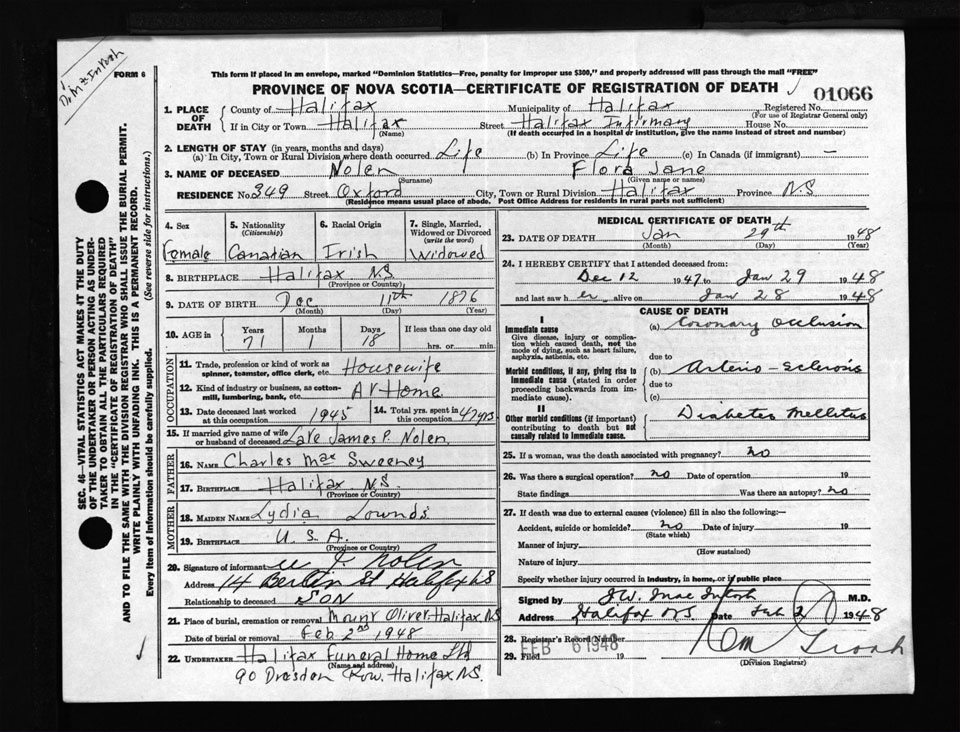 Dr. MacIntosh
FORM 6
This form if placed in an envelope, marked "Dominion Statistics—Free, penalty for improper use $300," and properly addressed will pass through the mail "FREE"
PROVINCE OF NOVA SCOTIA—CERTIFICATE OF REGISTRATION OF DEATH
01066
1. PLACE OF DEATH
County of Halifax Municipality of Halifax Registered No.
(For use of Registrar General only)
If in City or Town Halifax Street Halifax Infirmary House No.
(Name) (If death occurred in a hospital or institution, give the name instead of street and number)
2. LENGTH OF STAY (in years, months and days)
(a) In City, Town or Rural Division where death occurred. Life (b) In Province Life (c) In Canada (if immigrant) —
3. NAME OF DECEASED Nolen Flora Jane
(Surname) (Given name or names)
RESIDENCE No. 349 Street Oxford City, Town or Rural Division Halifax Province N.S
(Residence means usual place of abode. Post Office Address for residents in rural parts not sufficient)
4. Sex
Female
5. Nationality
(Citizenship)
Canadian
6. Racial Origin
Irish
7. Single, Married, Widowed or Divorced
(write the word)
Widowed
8. BIRTHPLACE Halifax N.S
(Province or Country)
9. DATE OF BIRTH Dec 11th 1876
(Month) (Day) (Year)
10. AGE in
Years Months Days If less than one day old
71 1 18 hrs. or min.
OCCUPATION
11. Trade, profession or kind of work as spinner, teamster, office clerk, etc. Housewife
12. Kind of industry or business, as cotton-mill, lumbering, bank, etc. At Home
13. Date deceased last worked at this occupation 1945
14. Total yrs. spent in this occupation 47 yrs
15. If married give name of wife or husband of deceased Late James P. Nolen
FATHER
16. NAME Charles Mac Sweeney
17. BIRTHPLACE Halifax N.S.
(Province or Country)
MOTHER
18. MAIDEN NAME Lydia Lownds
19. BIRTHPLACE U.S.A.
(Province or Country)
20. Signature of informant Nolen
Address 14 Berlin St Halifax NS
Relationship to deceased SON
21. Place of burial, cremation or removal Mount Olivet Halifax NS
Date of burial or removal Feb 2nd 1948
22. UNDERTAKER Halifax Funeral Home Ltd
(Name and address)
90 Dresden Row. Halifax N.S.
MEDICAL CERTIFICATE OF DEATH
23. DATE OF DEATH Jan 29th 1948
(Month) (Day) (Year)
24. I HEREBY CERTIFY that I attended deceased from:
Dec 12 1947 to Jan 29 1948
and last saw her alive on Jan 28 1948
CAUSE OF DEATH
I
Immediate cause
Give disease, injury or complication which caused death, not the mode of dying, such as heart failure, asphyxia, asthenia, etc.
(a) Coronary Occlusion
due to
Morbid conditions, if any, giving rise to immediate cause (stated in order proceeding backwards from immediate cause).
(b) Arterio-Sclerosis
due to
(c)
II
Other morbid conditions (if important) contributing to death but not causally related to immediate cause.
Diabetes Mellitus
25. If a woman, was the death associated with pregnancy? no
26. Was there a surgical operation? no Date of operation 19
State findings Was there an autopsy? no
27. If death was due to external causes (violence) fill in also the following:—
Accident, suicide or homicide? no Date of injury 19
(State which)
Manner of injury
(How sustained)
Nature of injury
Specify whether injury occurred in industry, in home, or in public place
Signed by J.W. MacIntosh M.D.
Address Halifax N.S. Date Feb 2 1948
28. Registrar's Record Number
29. Filed FEB 6 1948 19
(Division Registrar)
SEC. 46—VITAL STATISTICS ACT MAKES IT THE DUTY
OF THE UNDERTAKER OR PERSON ACTING AS UNDERTAKER TO OBTAIN ALL THE PARTICULARS REQUIRED
IN THE "CERTIFICATE OF REGISTRATION OF DEATH"
AND TO FILE THE SAME WITH THE DIVISION REGISTRAR WHO SHALL ISSUE THE BURIAL PERMIT.
WRITE PLAINLY WITH UNFADING INK. THIS IS A PERMANENT RECORD.
Every item of information should be carefully supplied. (See reverse side for instructions.)